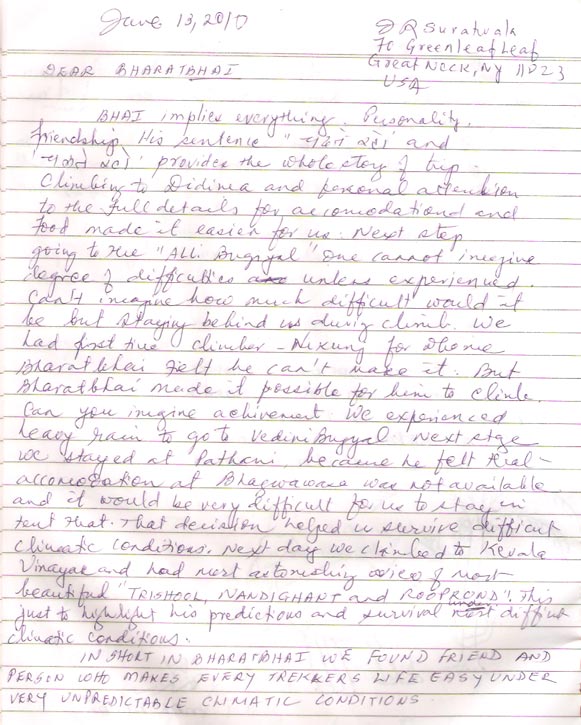 June 13, 2010
DR Suratwala
70 Greenleaf Leaf
Great Neck, NY 11023
USA
DEAR BHARATBHAI
BHAI implies everything. Personality,
friendship. His sentence " ચાલતે રહો" and
'ચાલતે રહો' provides the whole story of trip.
Climbing to Didina and personal attention
to the full details for accomodationd and
food made it easier for us. Next step
going to the "Alli Bugyal" one cannot imagine
degree of difficulties unless experienced.
Can't imagine how much difficult would it
be but staying behind us during climb. We
had first time climber - for whome
Bharatbhai felt he can't make it. But
Bharatbhai made it possible for him to climb.
Can you imagine achivement. We experienced
heavy rain to go to Vedini Bugyal. Next stge
we stayed at Pathani because he felt that -
accomodation at Bhagwawasa was not available
and it would be very difficult for us to stay in
tent that. That decision helped us survive difficult
climatic conditions. Next day we climbed to Kevala
Vinayac and had most astonishing of most
beautiful "TRISHOOL, NANDIGHANT and ROOPROND". This
just to highlight his predictions and survival under difficult
climatic conditions.
IN SHORT IN BHARATBHAI WE FOUND FRIEND AND
PERSON WHO MAKES EVERY TREKKERS LIFE EASY UNDER
VERY UNPREDICTABLE CLIMATIC CONDITIONS